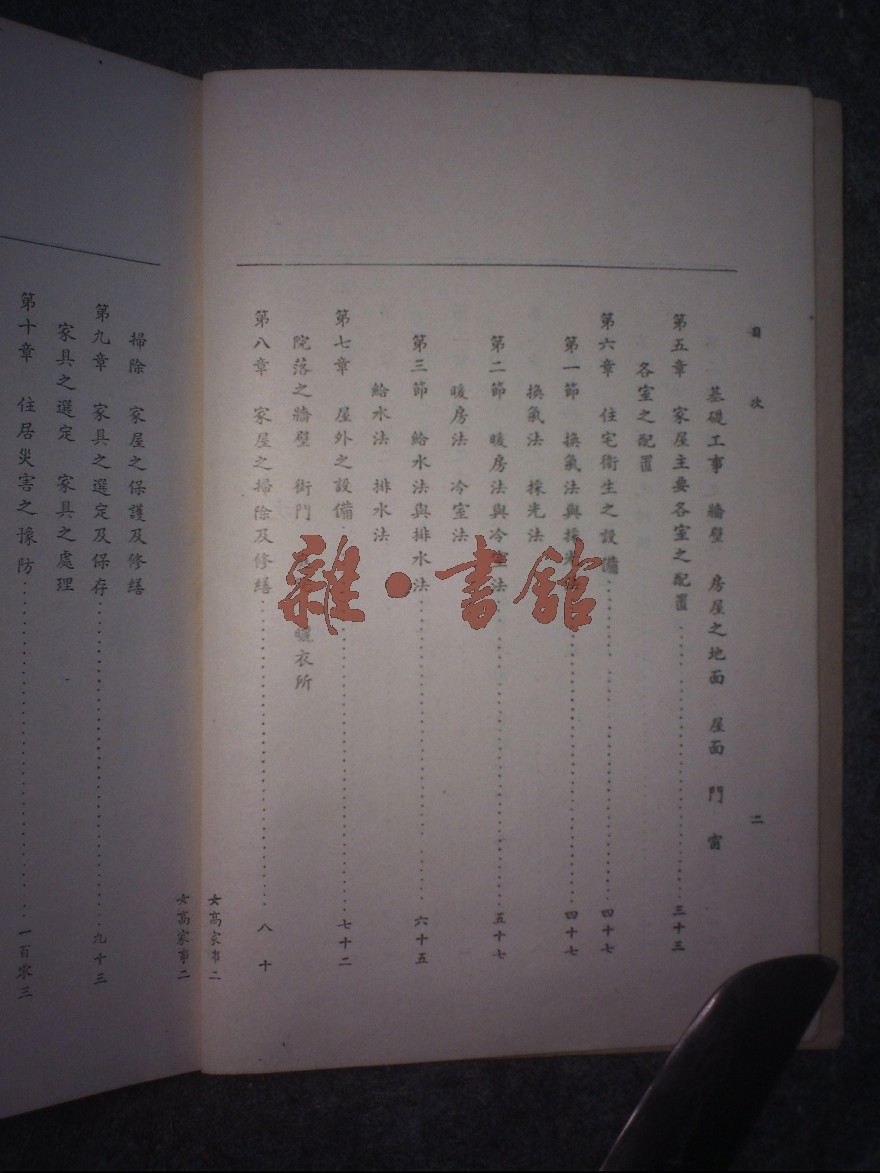 目次 二
基礎工事 牆壁 房屋之地面 屋面 門 窗
第五章 家屋主要各室之配置 三十三
各室之配置
第六章 住宅衛生之設備 四十七
第一節 換氣法與採光 四十七
換氣法 採光法
第二節 暖房法與冷室法 五十七
暖房法 冷室法
第三節 給水法與排水法 六十五
給水法 排水法
第七章 屋外之設備 七十二
院落之牆壁 街門 曬衣所
第八章 家屋之掃除及修繕 八十
女高家事二
女高家事二
掃除 家屋之保護及修繕
第九章 家具之選定及保存 九十三
家具之選定 家具之處理
第十章 住居災害之豫防 一百零三
雜·書館